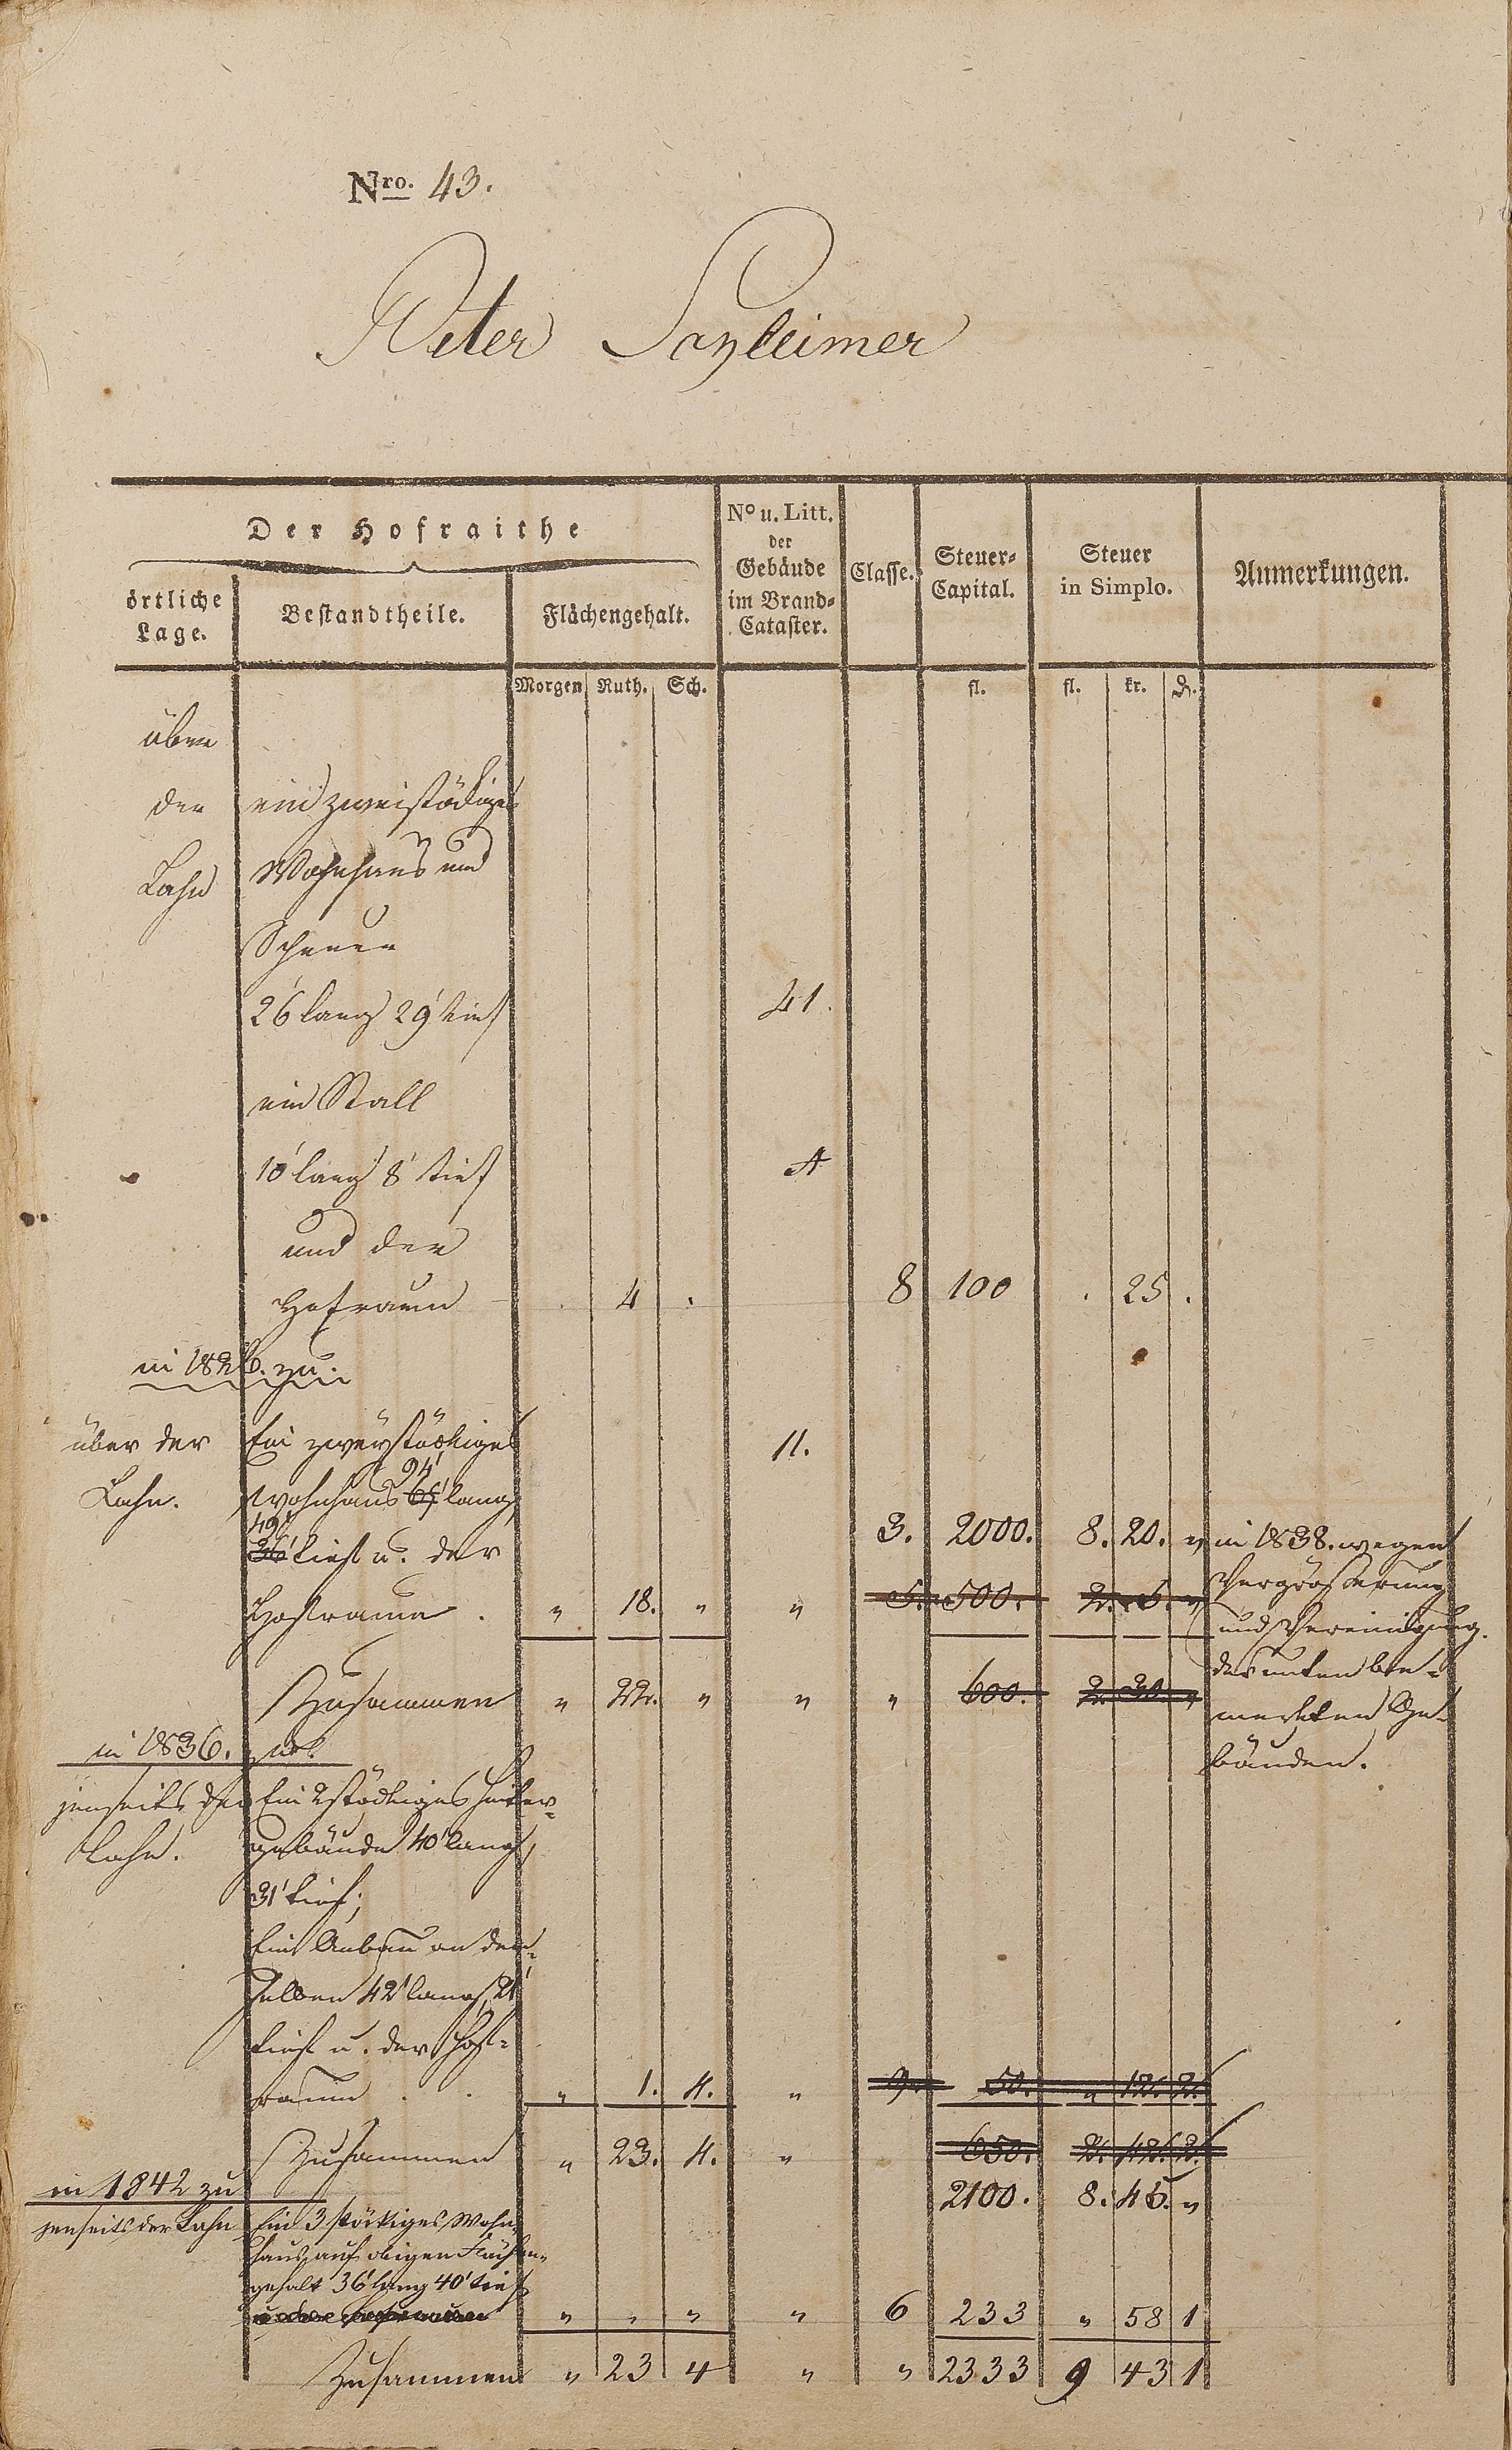 Nro. 43.
Peter
Der Hofraithe
örtliche Lage.
Bestandtheile.
Flächengehalt.
No u. Litt. der Gebäude im Brand-Cataster.
Classe.
Steuer-Capital.
Steuer in Simplo.
Anmerkungen.
Morgen Ruth. Sch. fl. fl. kr. d.
über
der ein zweistödiges
Lahn Wohnhaus und
Scheuer
26' lang 29' tief 41.
ein Stall
10' lang 8' tief A
und der
Hofraum . 4 . 8 100 . 25 .
in 1826. zu.
über der Ein zweystöckiges 11.
94'
Lahn. Wohnhaus 65' lang,
49'
36' tief u. der 3. 2000. 8. 20. " in 1838. wegen
Hofraum . " 18. " " 5. 500. 2. 5. " Vergrößerung
und Vereinigung
Zusammen " 22. " " " 600. 2. 30. " der unten be-
merkten Ge-
in 1836. zu. bäuden.
jenseits der Ein 2stöckiges Hinter-
Lahn. gebäude 40' lang,
31' tief;
Ein Anbau an dem-
selben 42' lang, 21'
tief u. der Hof-
raum . . " 1. 4. " 9. 50. " 12. 2.
Zusammen " 23. 4. " 650. 2. 42. 2.
in 1842 zu 2100. 8. 45. "
jenseits der Lahn Ein 3 stöckiges Wohn-
haus auf obigen Flächen-
gehalt 36' lang 40' tief
u. der Hofraum " " " " 6 233 " 58 1
Zusammen " 23 4 " " 2333 9 43 1